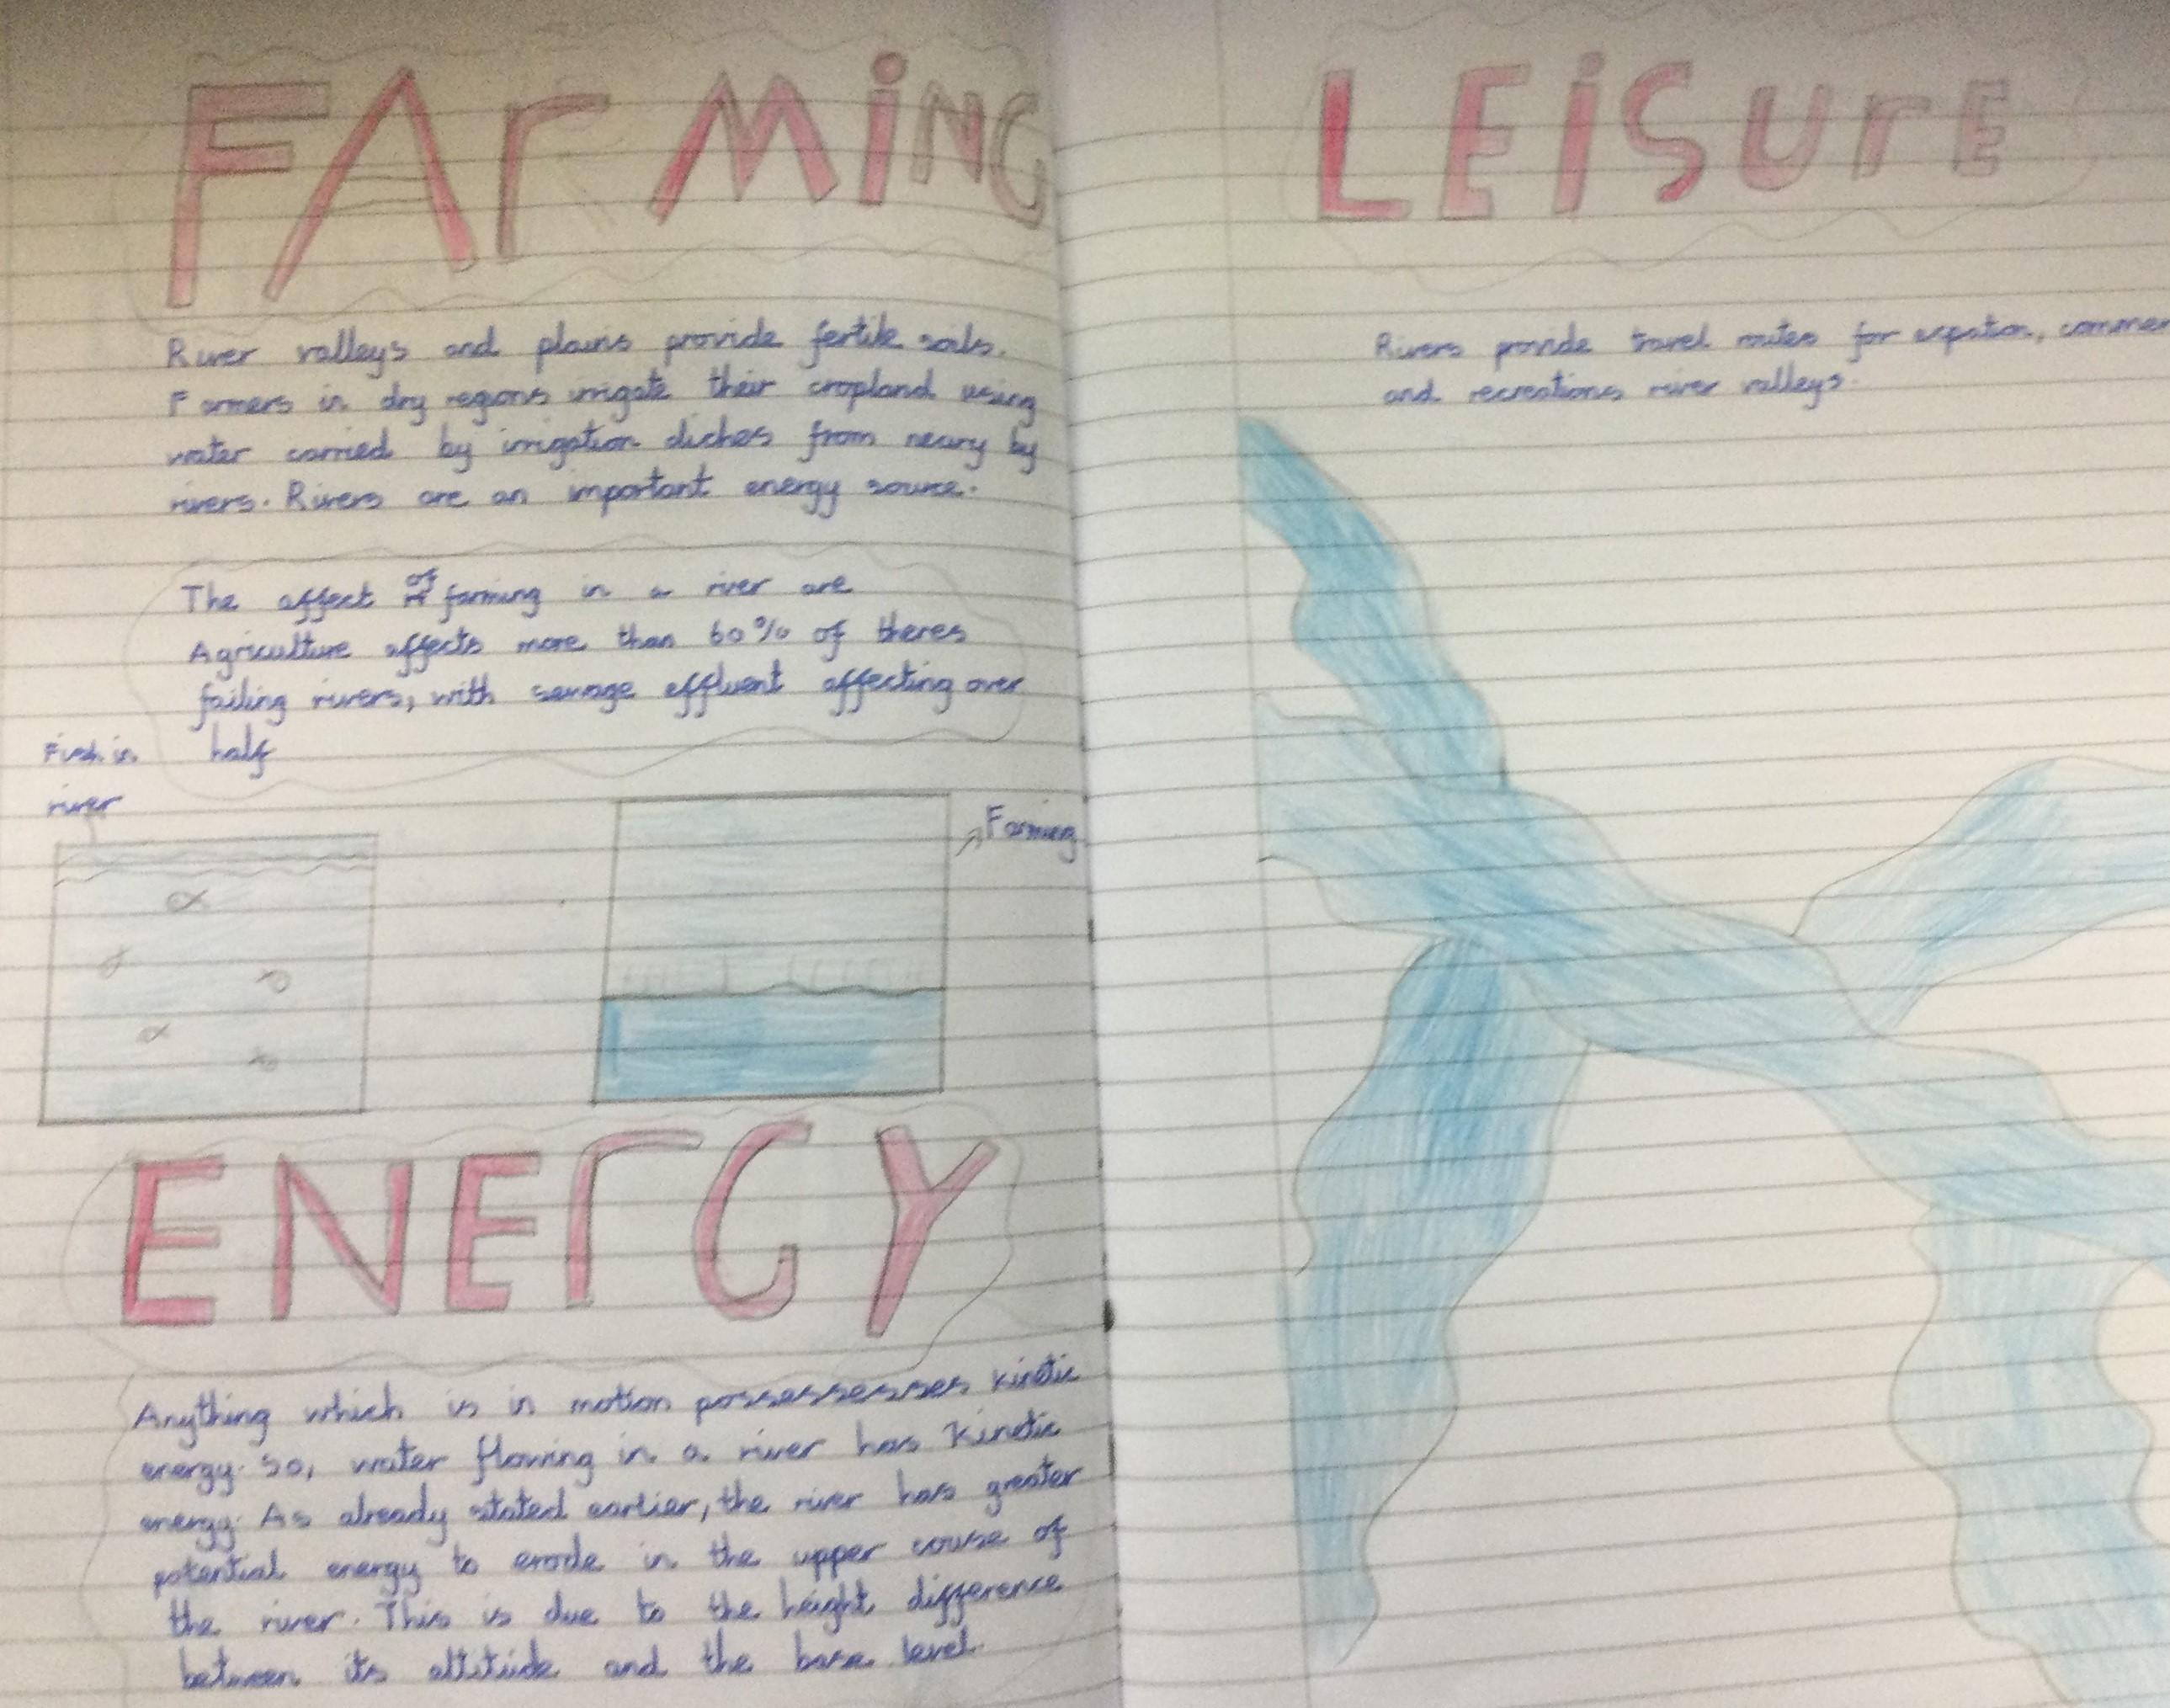 FArMiNG
River valleys and plains provide fertile soils.
Farmers in dry regions irrigate their cropland using
water carried by irrigation diches from neary by
rivers. Rivers are an important energy source.
The affect of farming in a river are
Agriculture affects more than 60% of theres
failing rivers, with sewage effluent affecting over
half
Fish in
river
Farming
ENErGY
Anything which is in motion possessesses kinetic
energy. So, water flowing in a river has kinetic
energy. As already stated earlier, the river has greater
potential energy to erode in the upper couse of
the river. This is due to the height difference
between its altitude and the base level.
LEiSUrE
Rivers provide travel routes for
and recreations river valleys.